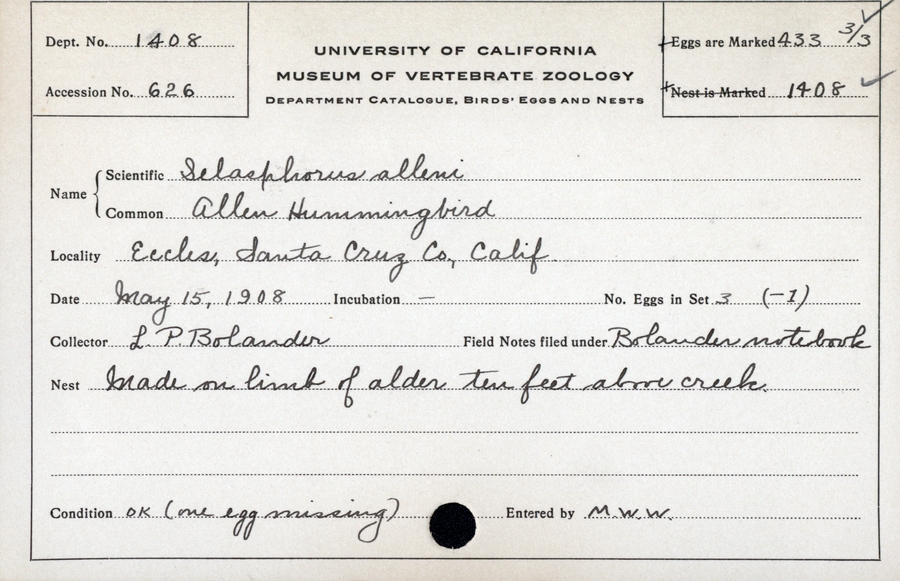 Dept. No. 1408
Accession No. 626
UNIVERSITY OF CALIFORNIA
MUSEUM OF VERTEBRATE ZOOLOGY
DEPARTMENT CATALOGUE, BIRDS' EGGS AND NESTS
Eggs are Marked 433 3/3
Nest is Marked 1408
Name
Scientific Selasphorus alleni
Common Allen Hummingbird
Locality Eccles, Santa Cruz Co., Calif.
Date May 15, 1908 Incubation — No. Eggs in Set 3 (-1)
Collector L. P. Bolander Field Notes filed under Bolander notebook
Nest Made on limb of alder ten feet above creek.
Condition OK (one egg missing) Entered by M.W.W.